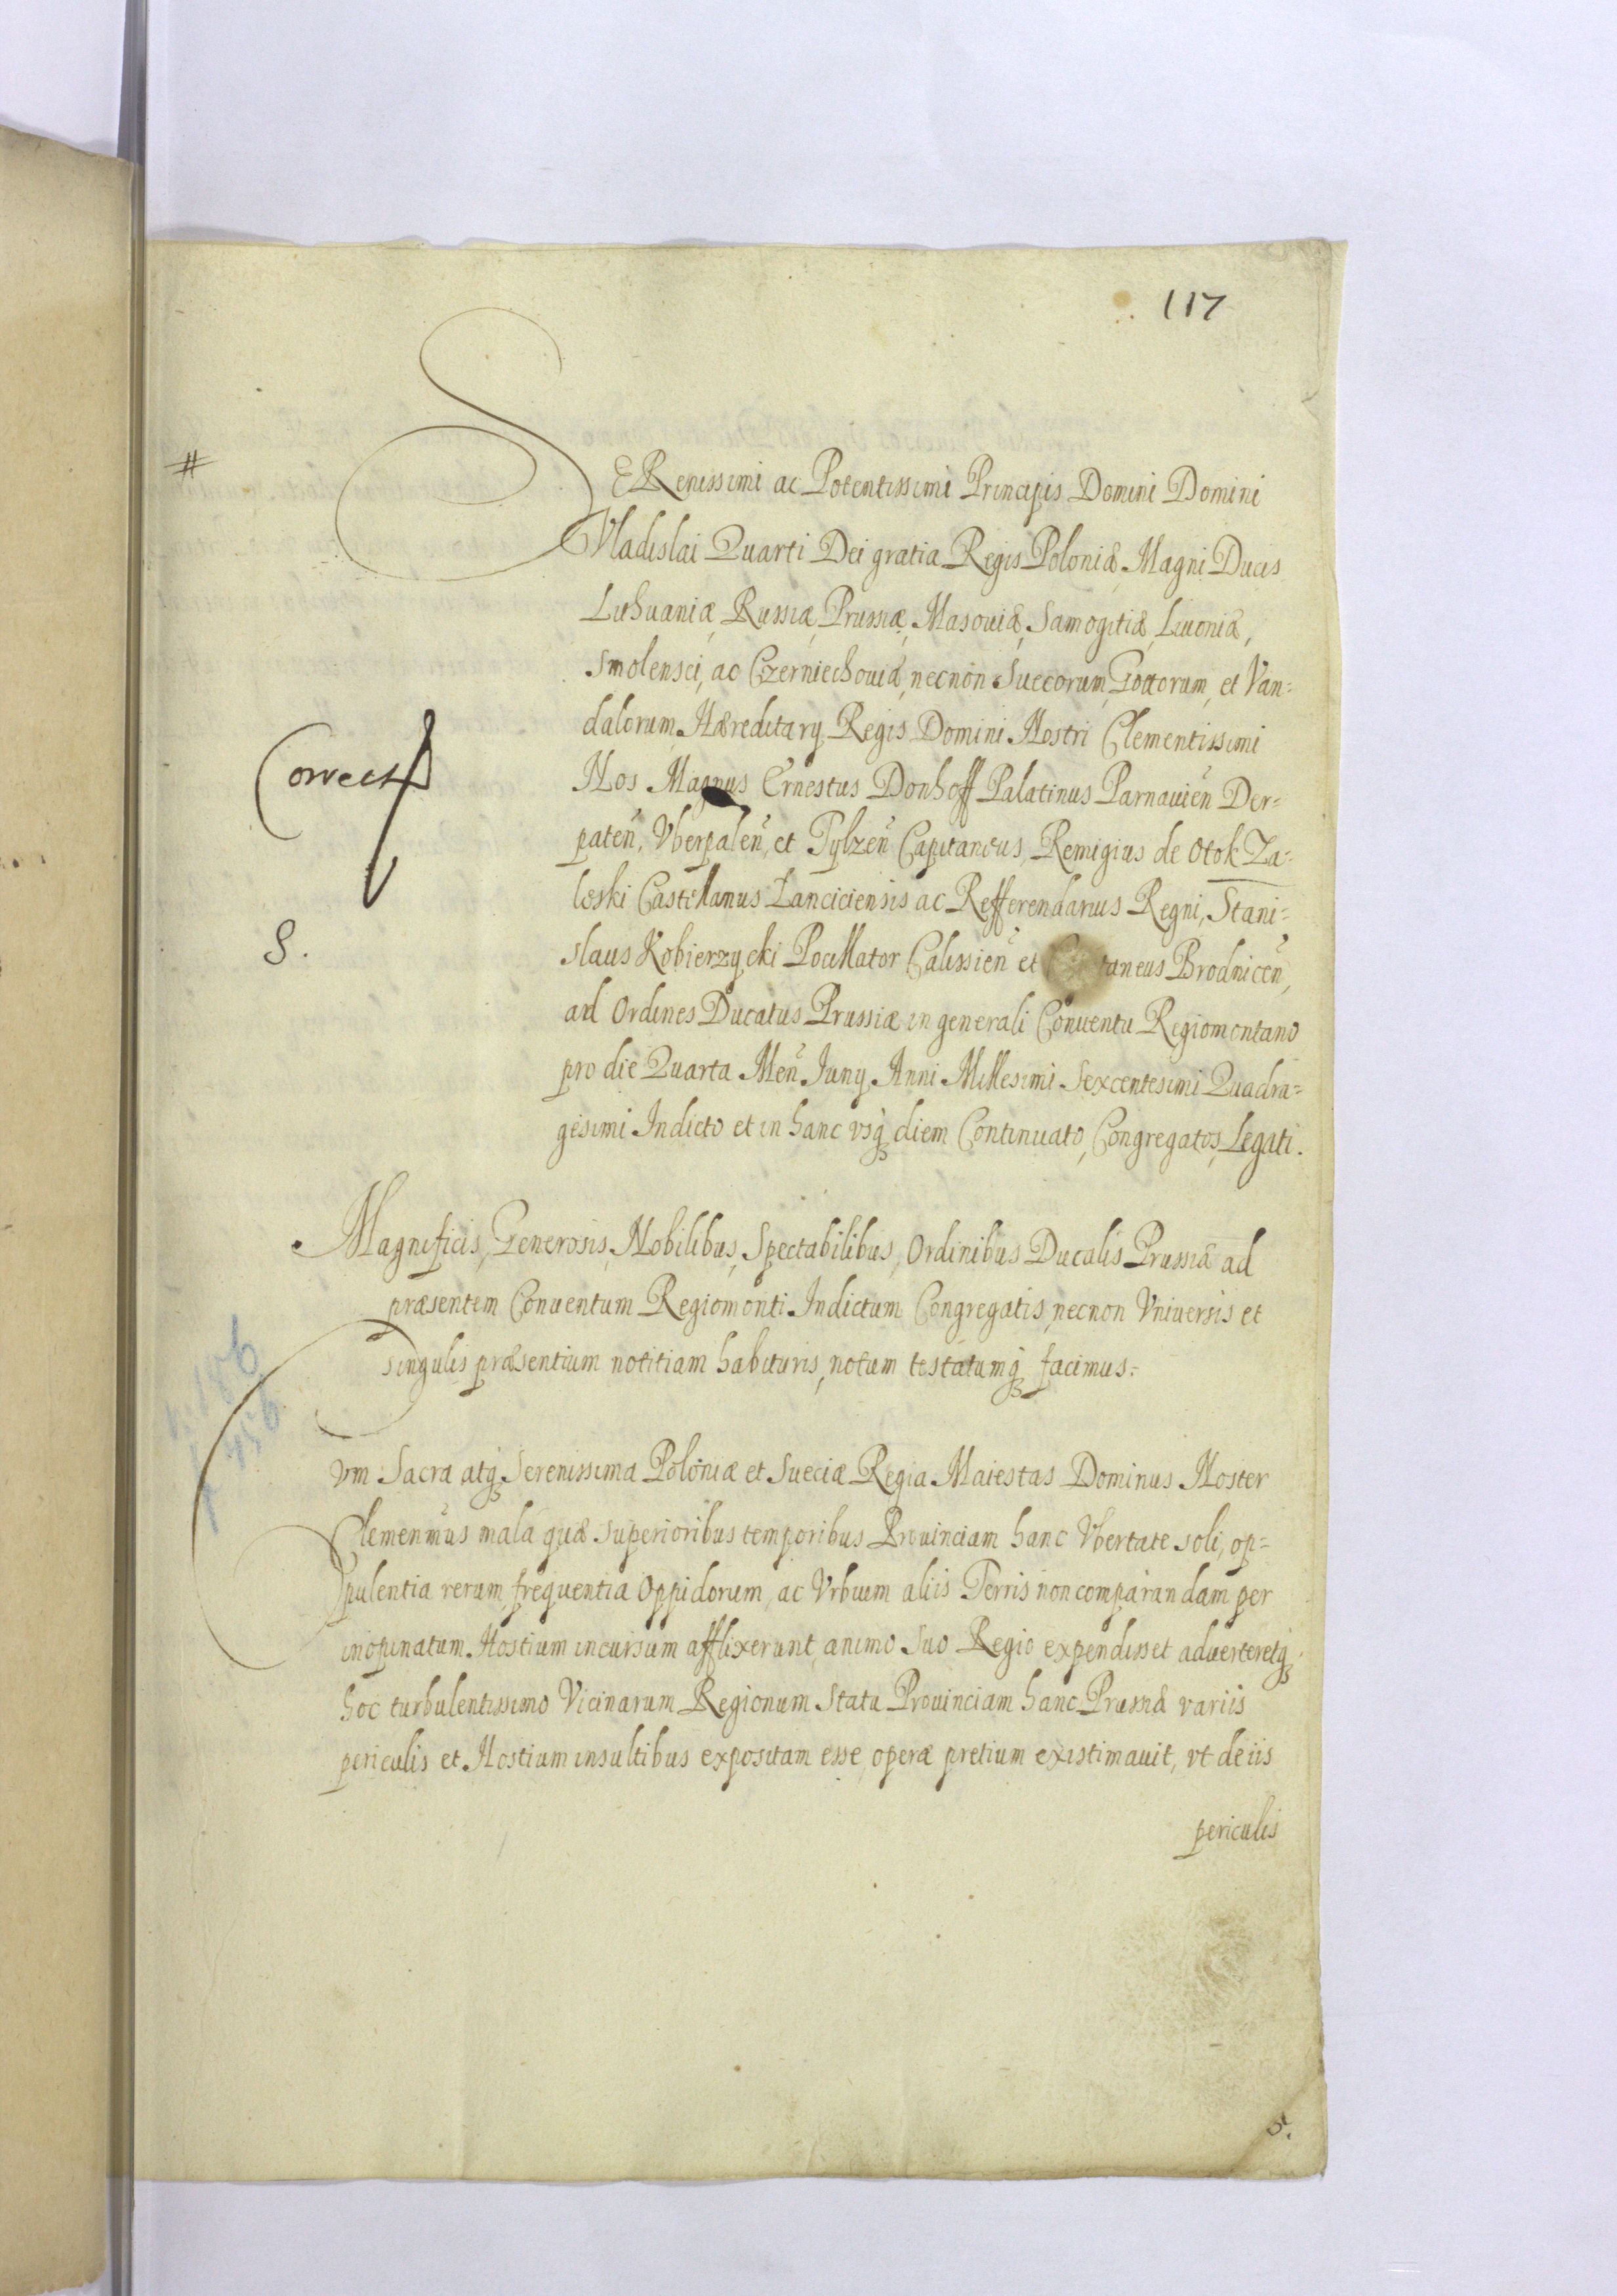 117
#
SERenissimi ac Potentissimi Principis Domini Domini
Vladislai Quarti Dei gratia Regis Poloniæ Magni Ducis
Lithuaniæ, Russiæ, Prussiæ, Masouiæ, Samogitiæ, Liuoniæ,
Smolensci, ac Czerniechouiæ, necnon Suecorum, Gottorum, et Van=
dalorum, Hæreditarÿ Regis Domini Nostri Clementissimi
Correct
Nos Magnus Ernestus Donhoff Palatinus Parnauien̄ Der=
paten̄, Vberpalen̄, et Tylzen̄ Capitaneus, Remigius de Otok Za=
leski Castellanus Lanciciensis ac Refferendarius Regni, Stani=
S.
slaus Kobierzycki Pocillator Calissien̄ et taneus Brodnicen̄,
ad Ordines Ducatus Prussiæ in generali Conuentu Regiomontano
pro die Quarta Men̄ Junÿ Anni Millesimi Sexcentesimi Quadra=
gesimi Indicto et in hanc vsq diem Continuato, Congregatos, Legati.
Magnificis, Generosis, Nobilibus, Spectabilibus, Ordinibus Ducalis Prussiæ ad
præsentem Conuentum Regiomonti Indictum Congregatis, necnon Vniuersis et
singulis præsentium notitiam habituris, notum testatumq facimus:
Cvm Sacra atq Serenissima Poloniæ et Sueciæ Regia Maiestas Dominus Noster
Clemenm̄us mala quæ superioribus temporibus Prouinciam hanc Vbertate soli, op=
pulentia rerum, frequentia Oppidorum, ac Vrbium aliis Terris non comparandam per
inopinatum Hostium incursum afflixerunt, animo Suo Regio expendisset aduerteretq
hoc turbulentissimo Vicinarum Regionum Statu Prouinciam hanc Prussiæ variis
periculis et Hostium insultibus expositam esse, operæ pretium existimauit, vt de iis
periculis